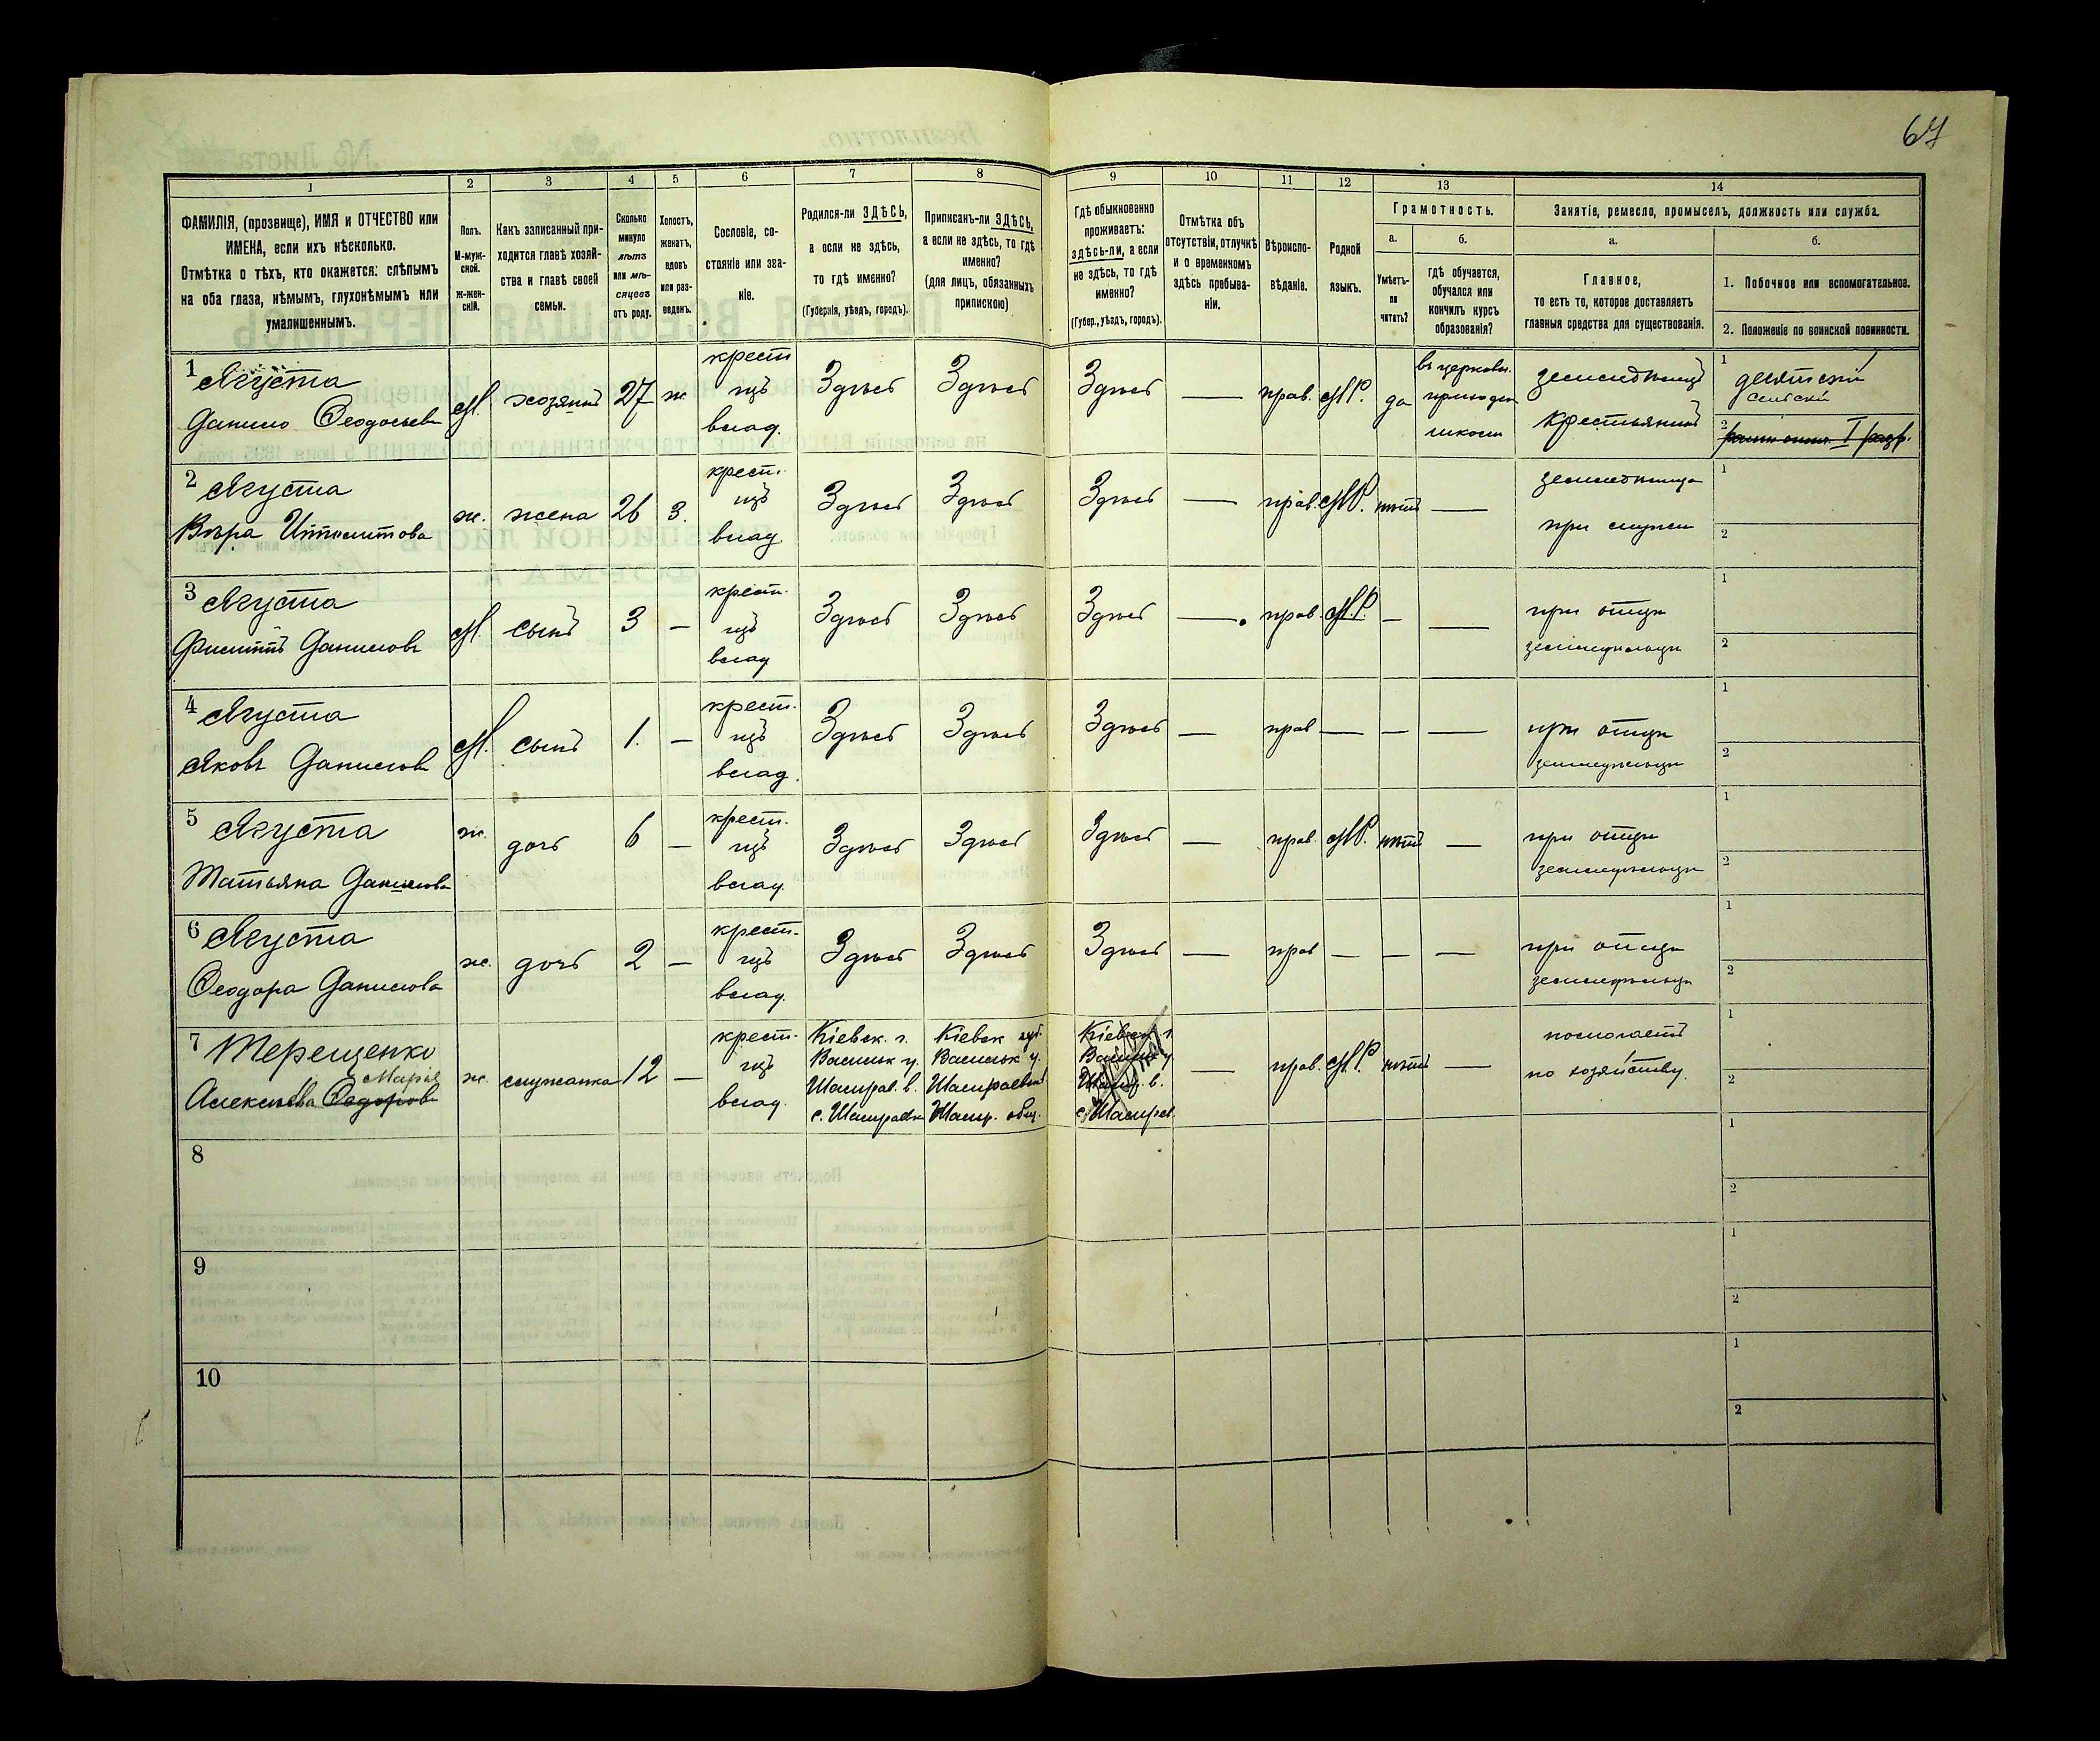 67
1
2
3
4
5
6
7
8
9
10
11
12
13
14
ФАМИЛІЯ, (прозвище), ИМЯ и ОТЧЕСТВО или
ИМЕНА, если ихъ нѣсколько.
Отмѣтка о тѣхъ, кто окажется: слѣпымъ
на оба глаза, нѣмымъ, глухонѣмымъ или
умалишеннымъ.
Полъ.
М-муж-
ской.
Ж-жен-
скій.
Какъ записанный при-
ходится главѣ хозяй-
ства и главѣ своей
семьи.
Сколько
минуло
лѣтъ
или мѣ-
сяцевъ
отъ роду.
Холостъ,
женатъ,
вдовъ
или раз-
веденъ.
Сословіе, со-
стояніе или зва-
ніе.
Родился-ли ЗДѢСЬ,
а если не здѣсь,
то гдѣ именно?
(Губернія, уѣздъ, городъ).
Приписанъ-ли ЗДѢСЬ,
а если не здѣсь, то гдѣ
именно?
(для лицъ, обязанныхъ
припискою)
Гдѣ обыкновенно
проживаетъ:
здѣсь-ли, а если
не здѣсь, то гдѣ
именно?
(Губер., уѣздъ, городъ).
Отмѣтка объ
отсутствіи, отлучкѣ
и о временномъ
здѣсь пребыва-
ніи.
Вѣроиспо-
вѣданіе.
Родной
языкъ.
Грамотность.
а.
Умѣетъ-
ли
читать?
б.
гдѣ обучается,
обучался или
кончилъ курсъ
образованія?
Занятіе, ремесло, промыселъ, должность или служба.
а.
Главное,
то есть то, которое доставляетъ
главныя средства для существованія.
б.
1. Побочное или вспомогательное.
2. Положеніе по воинской повинности.
1 Ягуста
Данило Ѳеодосіевъ
М. хозяинъ 27 ж
крест.
изъ
влад.
Здѣсь Здѣсь Здѣсь — прав. М.Р. да
въ церковн.
приходск.
школѣ
крестьянинъ
1
2
I разр.
2 Ягуста
Вѣра Ипполитова
ж. жена 26 З.
крест.
изъ
влад.
Здѣсь Здѣсь Здѣсь — прав. М.Р. нѣтъ —
при мужѣ
1
2
3 Ягуста
Филиппъ Даниловъ
М. сынъ 3 —
крест.
изъ
влад
Здѣсь Здѣсь Здѣсь — прав. М.Р. — —
при отцѣ
земледѣльцѣ
1
2
4 Ягуста
Яковъ Даниловъ
М. сынъ 1. —
крест.
изъ
влад.
Здѣсь Здѣсь Здѣсь — прав — — —
при отцѣ
земледѣльцѣ
1
2
5 Ягуста
Татьяна Данилова
ж. дочь 6 —
крест.
изъ
влад.
Здѣсь Здѣсь Здѣсь — прав. М.Р. нѣтъ —
при отцѣ
земледѣльцѣ
1
2
6 Ягуста
Ѳеодора Данилова
ж. дочь 2 —
крест.
изъ
влад.
Здѣсь Здѣсь Здѣсь — прав — — —
при отцѣ
земледѣльцѣ
1
2
7 Терещенко
Марія
Алексѣева Ѳедорова
ж. служанка 12 —
крест.
изъ
влад.
Кіевск. г.
Васильк у.
Шамраев. в.
с. Шамраевк
Кіевск губ.
Васильк у.
Шамраевской
Шамр. общ.
Кіевск г.
Васильк у.
Шамр. в.
с. Шамраев.
— прав. М.Р. нѣтъ —
помогаетъ
по хозяйству.
1
2
8
1
2
9
1
2
10
1
2